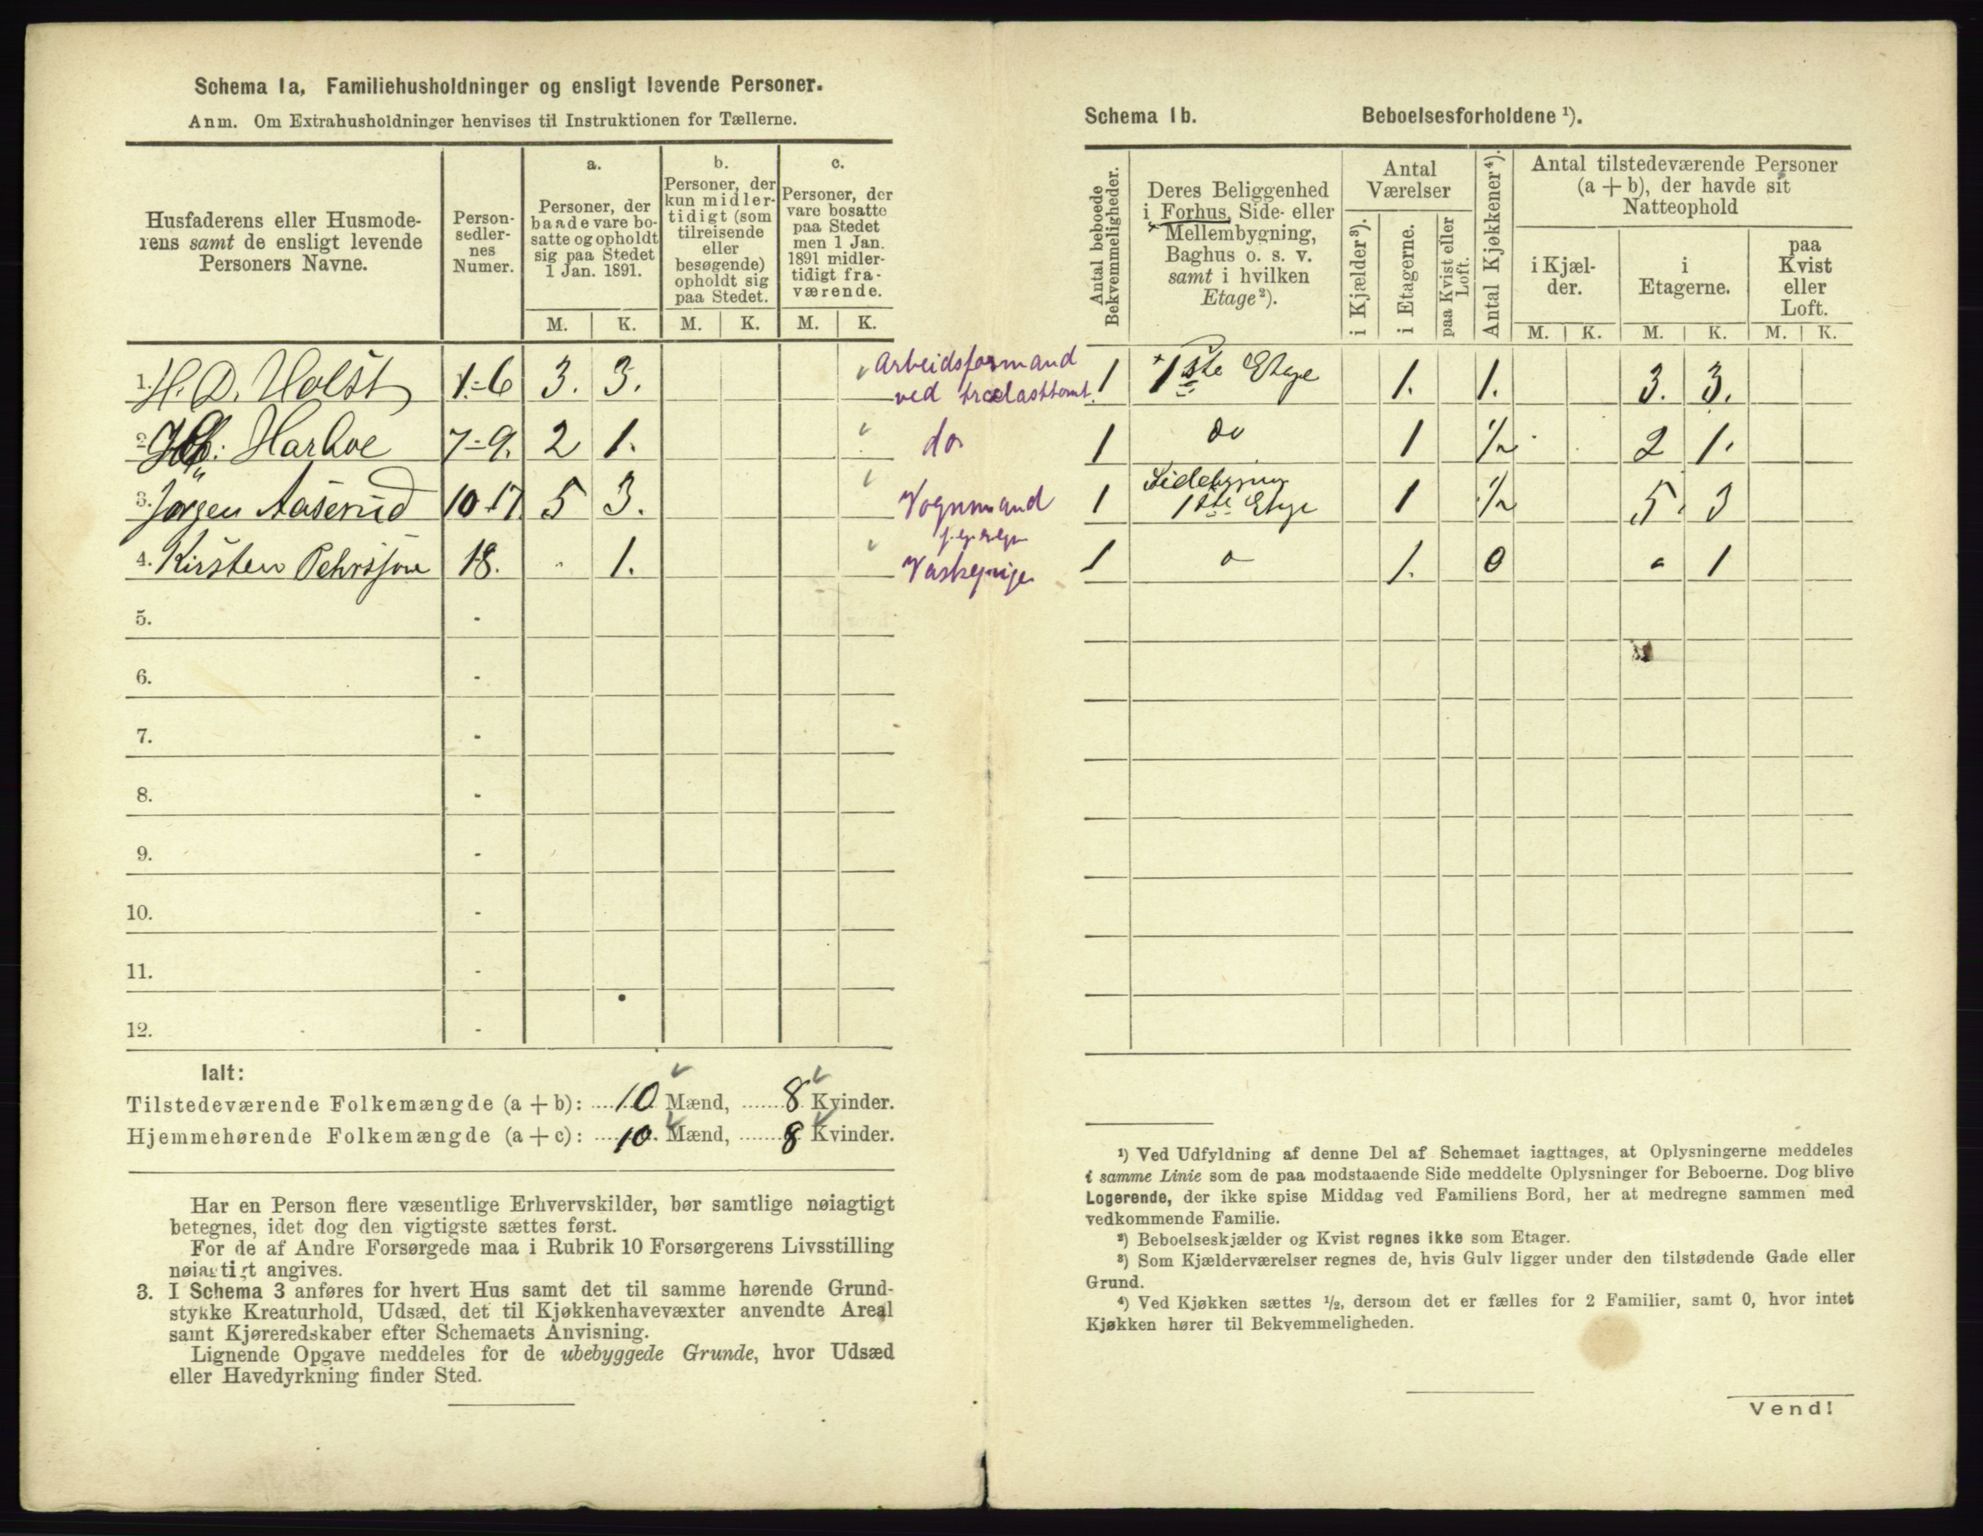 Schema 1a, Familiehusholdninger og ensligt levende Personer.
Anm. Om Extrahusholdninger henvises til Instruktionen for Tællerne.
Husfaderens eller Husmoderens samt de ensligt levende Personers Navne.
Personsedlernes Numer.
a.
Personer, der baade vare bosatte og opholdt sig paa Stedet 1 Jan. 1891.
b.
Personer, der kun midlertidigt (som tilreisende eller besøgende) opholdt sig paa Stedet.
c.
Personer, der vare bosatte paa Stedet men 1 Jan. 1891 midlertidigt fraværende.
M. K. M. K. M. K.
1. H. D. Holst 1-6 3. 3. Arbeidsformand
ved trælasttomt.
2. Harboe 7-9. 2 1. do
3. Jørgen Aaserud 10-17 5 3. Vognmand
4. Kirsten Pehrsson 18. 1.
5. -
6. -
7. -
8. -
9. -
10. -
11. -
12. -
Ialt:
Tilstedeværende Folkemængde (a + b): 10 Mænd, 8 Kvinder.
Hjemmehørende Folkemængde (a + c): 10 Mænd, 8 Kvinder.
Har en Person flere væsentlige Erhvervskilder, bør samtlige nøiagtigt
betegnes, idet dog den vigtigste sættes først.
For de af Andre Forsørgede maa i Rubrik 10 Forsørgerens Livsstilling
nøiagtigt angives.
3. I Schema 3 anføres for hvert Hus samt det til samme hørende Grund-
stykke Kreaturhold, Udsæd, det til Kjøkkenhavevæxter anvendte Areal
samt Kjøreredskaber efter Schemaets Anvisning.
Lignende Opgave meddeles for de ubebyggede Grunde, hvor Udsæd
eller Havedyrkning finder Sted.
Schema 1b. Beboelsesforholdene ¹).
Antal beboede Bekvemmeligheder.
Deres Beliggenhed i Forhus, Side- eller Mellembygning, Baghus o. s. v. samt i hvilken Etage²).
Antal Værelser
i Kjælder³).
i Etagerne.
paa Kvist eller Loft.
Antal Kjøkkener⁴).
Antal tilstedeværende Personer (a + b), der havde sit Natteophold
i Kjælder.
i Etagerne.
paa Kvist eller Loft.
M. K. M. K. M. K.
1 1ste Etage 1. 1. 3. 3.
1 do 1 ½ 2 1.
1 Sidebygn
1ste Etage 1 ½ 5 3
1 1. 0 1
¹) Ved Udfyldning af denne Del af Schemaet iagttages, at Oplysningerne meddeles
i samme Linie som de paa modstaaende Side meddelte Oplysninger for Beboerne. Dog blive
Logerende, der ikke spise Middag ved Familiens Bord, her at medregne sammen med
vedkommende Familie.
²) Beboelseskjælder og Kvist regnes ikke som Etager.
³) Som Kjælderværelser regnes de, hvis Gulv ligger under den tilstødende Gade eller
Grund.
⁴) Ved Kjøkken sættes ½, dersom det er fælles for 2 Familier, samt 0, hvor intet
Kjøkken hører til Bekvemmeligheden.
Vend!